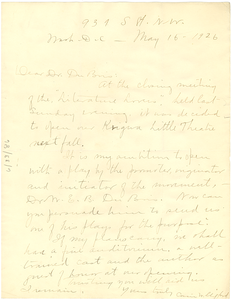 939 S St. N.W.
Wash. D.C. — May 16 - 1926
Dear Dr. Du Bois
At the closing meeting
of the "Literature Lovers" held last
Sunday evening it was decided
to open our Krigwa Little Theatre
next fall.
It is my ambition to open
with a play by the promoter, originator
and instigator of the movement,
Dr. W. E. B. Du Bois. Now can
you persuade him to send us
one of his plays for the purpose?
If my plans carry, we shall
have a fine auditorium, a well-
trained cast and the author as
guest of honor at our opening.
you will aid us
I remain
Yours truly